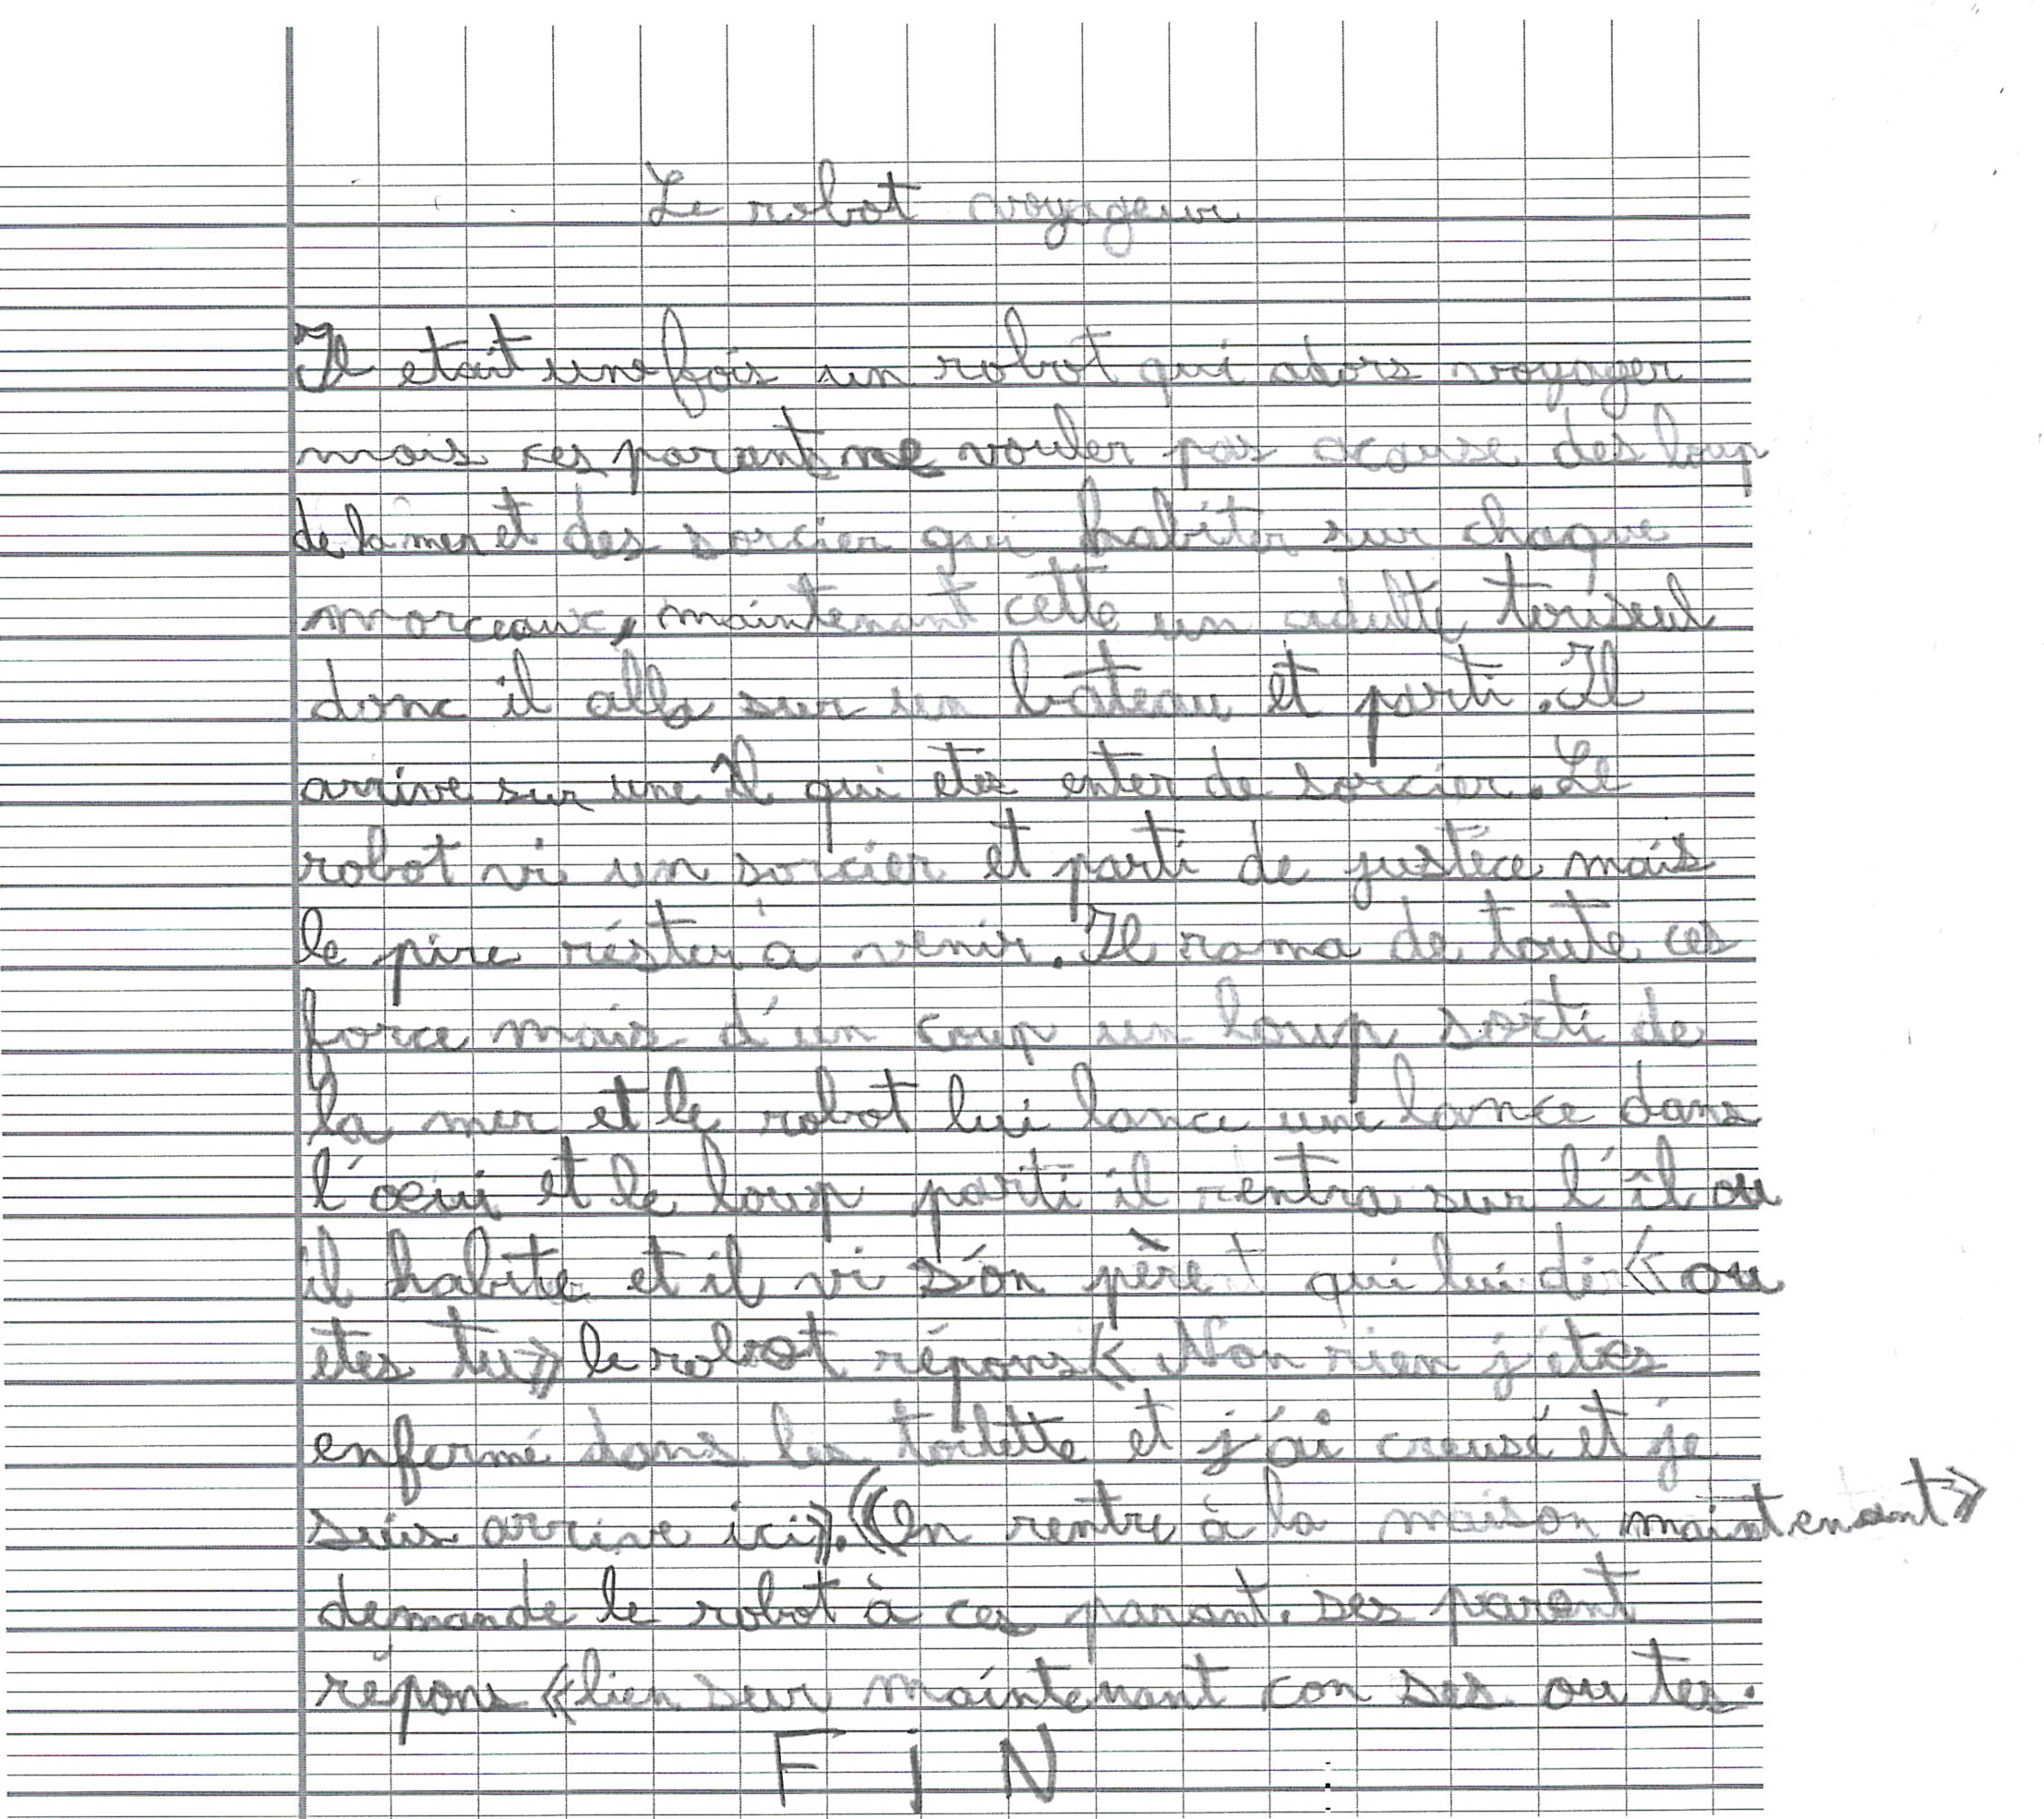 Le robot voyageur
Il etait une fois un robot qui adors voyager
mais ces parents ne vouler pas acause des loup
de la mer et des sorcier qui habiter sur chaque
morceaux, maintenant cette un adulte touseul
donc il alla sur un bateau et parti. Il
arrive sur une îl qui etes enter de sorcier. Le
robot vi un sorcier et parti de justece mais
le pire réster à venir. Il rama de toute ces
force mais d'un coup un loup sorti de
la mer et le robot lui lance une lance dans
l'oeui et le loup parti il rentra sur l'îl ou
il habite et il vi s'on père qui lui di « ou
etes tu » le robot répons « Non rien j'etes
enfermé dans les toilette et j'ai creusé et je
suis arrive ici ». « On rentre à la maison maintenant »
demande le robot à ces parant. ses parent
répons « bien sur maintenant con ses ou tes.
FiN